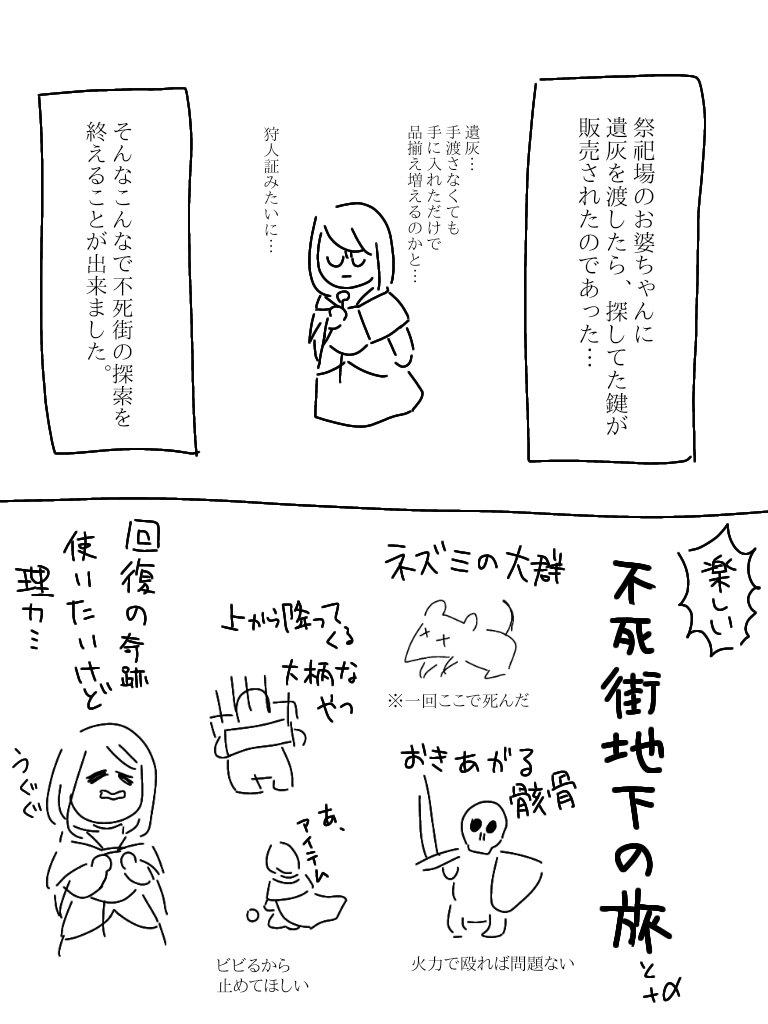 祭祀場のお婆ちゃんに
遺灰を渡したら、探してた鍵が
販売されたのであった…
遺灰…
手渡さなくても
手に入れただけで
品揃え増えるのかと…
狩人証みたいに…
そんなこんなで不死街の探索を
終えることが出来ました。
楽しい
不死街地下の旅
と+α
ネズミの大群
※一回ここで死んだ
おきあがる
骸骨
火力で殴れば問題ない
上から降って
くる
大柄な
やつ
あ、
アイテム
ビビるから
止めてほしい
回復の奇跡
使いたいけど
理力ミ
うぐぐ